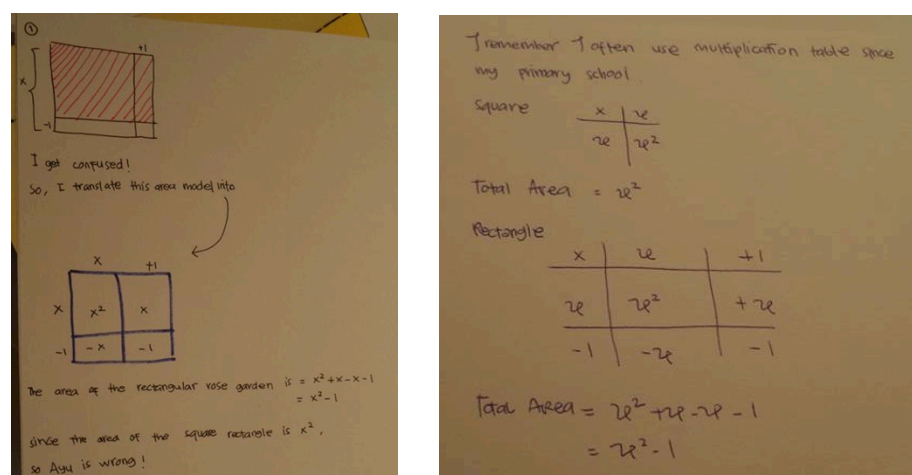 ①
+1
x
-1
I get confused!
So, I translate this area model into
x +1
x x² x
-1 -x -1
The area of the rectangular rose garden is = x²+x-x-1
= x²-1
since the area of the square rectangle is x²,
so Ayu is wrong!
I remember I often use multiplication table since
my primary school.
Square
× x
x x²
Total Area = x²
Rectangle
× x +1
x x² +x
-1 -x -1
Total Area = x²+x-x-1
= x²-1